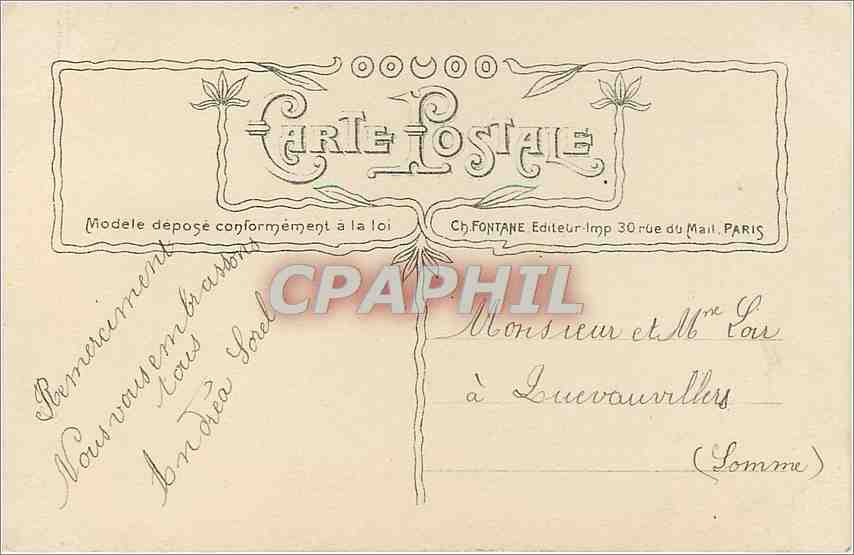 CARTE POSTALE
Modèle déposé conformément à la loi
Ch. FONTANE Editeur-Imp 30 rue du Mail. PARIS
CPAPHIL
Remerciment
Nous vous embrassons
tous
Andréa Sorel
Monsieur et Mme Loir
à Quevauvillers
(Somme)